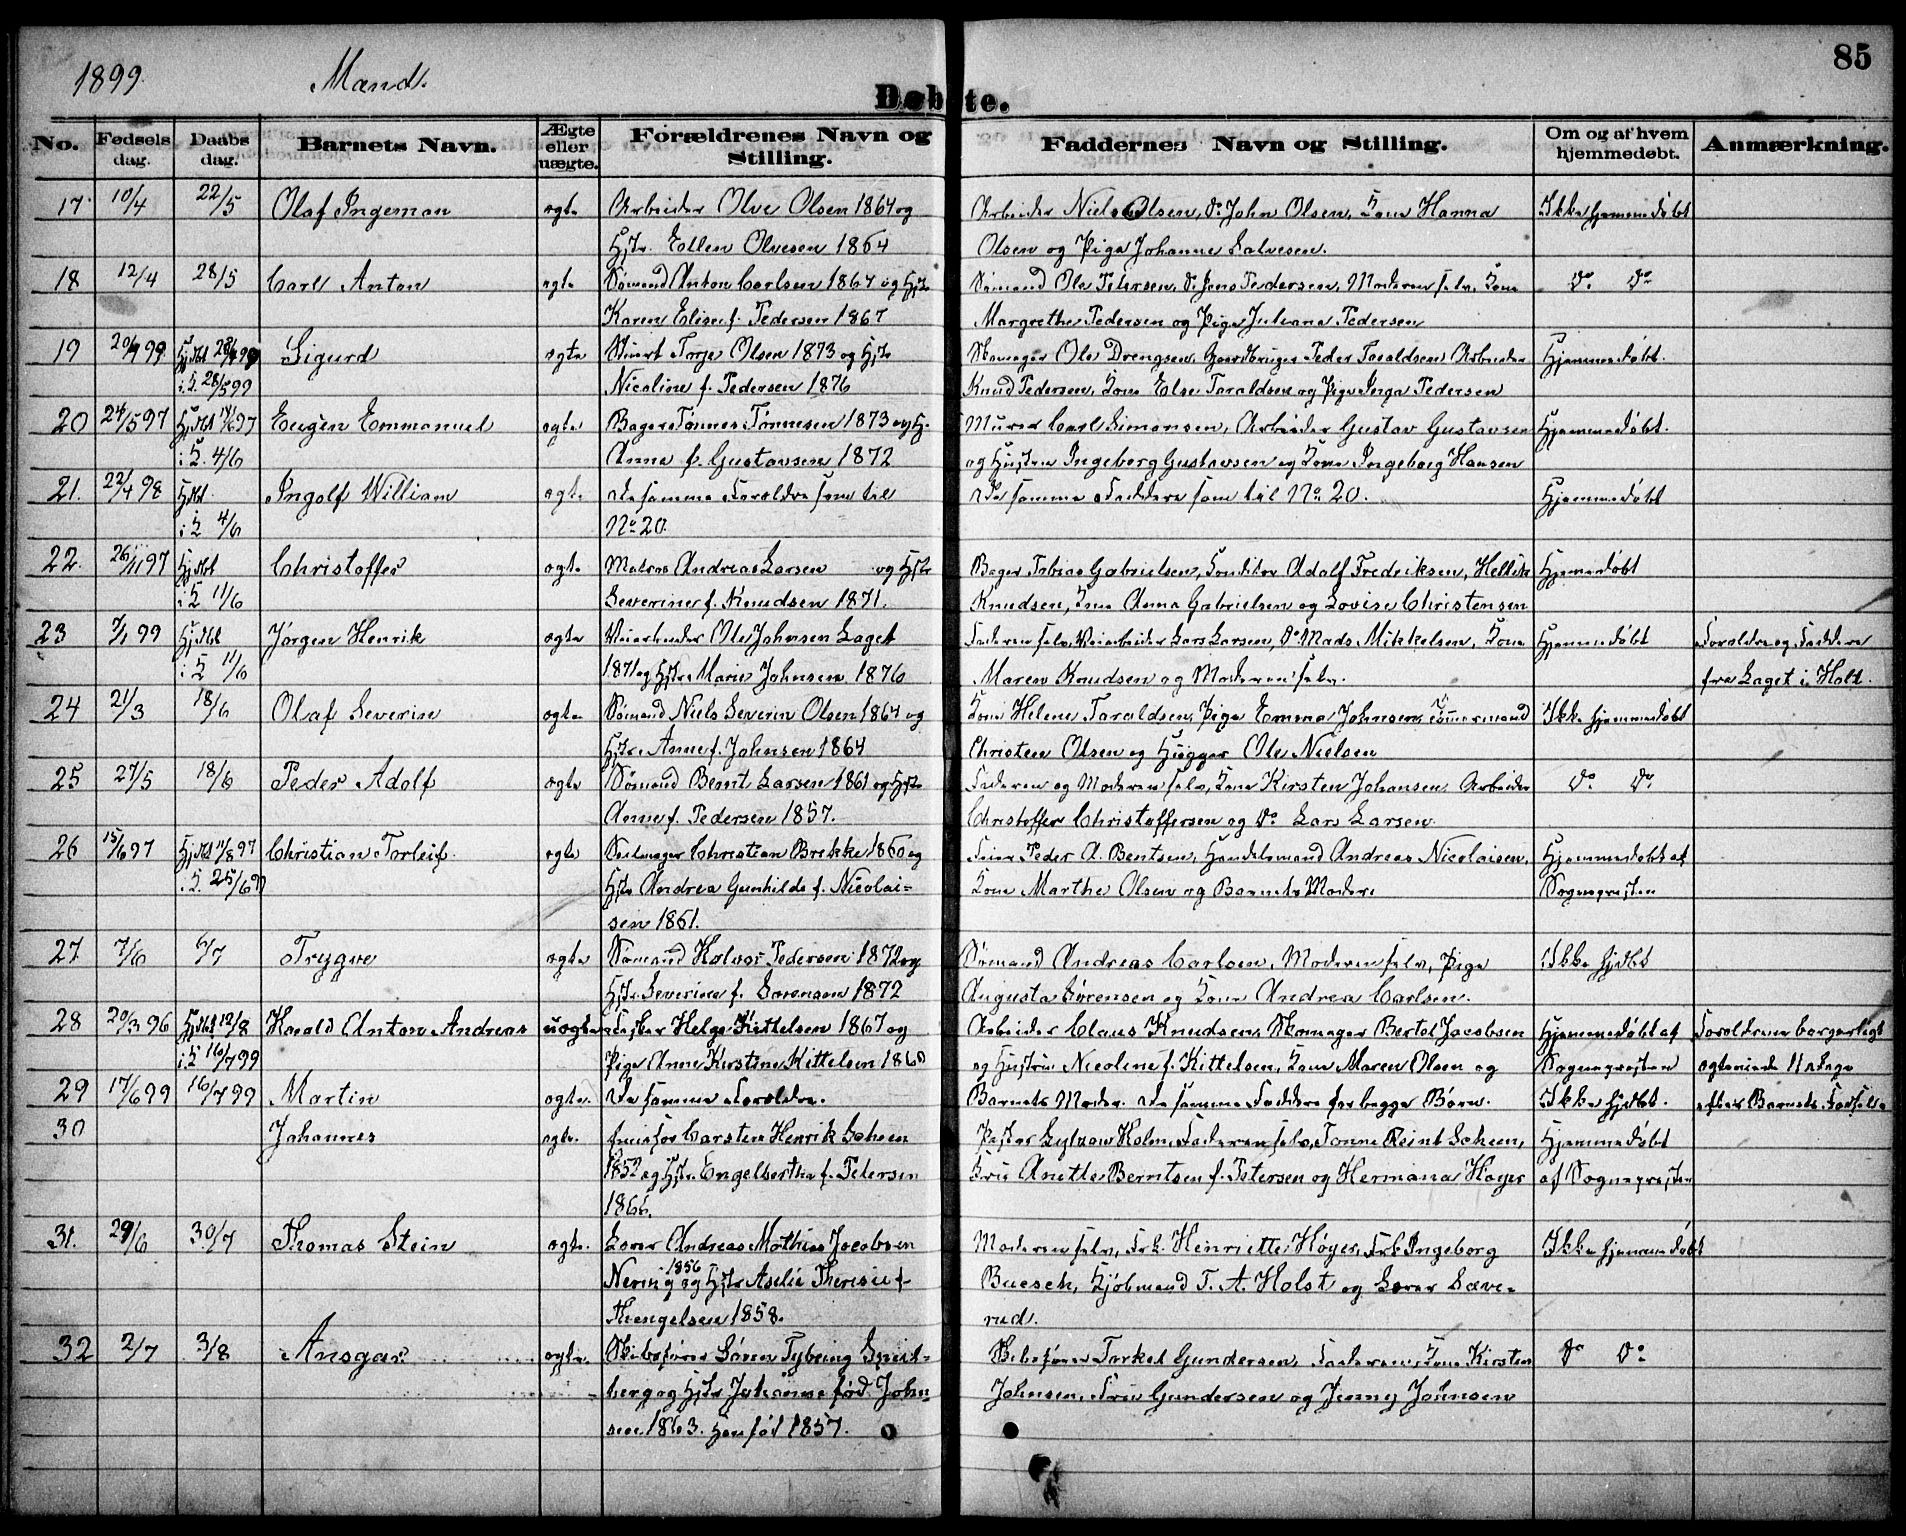 1899. Mænd. 85
Døbte.
No. Fødsels dag. Daabs dag. Barnets Navn. Ægte eller uægte. Forældrenes Navn og Stilling. Faddernes Navn og Stilling. Om og af hvem hjemmedøbt. Anmærkning.
17 10/4 22/5 Olaf Ingeman ægte Arbeider Olve Olsen 1864 og Arbeider Niels Olsen, do John Olsen, Kone Hanna Ikke hjemmedøbt
Hstr. Ellen Olvesen 1864 Olsen og Pige Johanne Salvesen.
18 12/4 28/5 Carl Anton ægte Sømand Anton Carlsen 1864 og Hstr Sømand Ole Petersen, do Jens Pedersen, Moderen selv, Kone do do
Karen Elise f. Pedersen 1867 Margrethe Pedersen og Pige Juliana Pedersen
19 20/4 99 Hjdbt Sigurd ægte Stuert Terje Olsen 1873 og Hstr Skomager Ole Drengsen, Gaardbruger Peder Taraldsen Arbeider Hjemmedøbt.
i K. 28/5 99 Nicoline f. Pedersen 1876 Knud Pedersen, Kone Else Taraldsen og Pige Inga Pedersen
20 24/5 97 Hjdbt Eugèn Emmanuel ægte Bager Tønnes Tønnesen 1873 og H. Murer Carl Simonsen, Arbeider Gustav Gustavsen Hjemmedøbt.
i K. 4/6 Anna f. Gustavsen 1872 og Hustru Ingeborg Gustavsen og Kone Ingeborg Hansen
21. 22/4 98 Hjdbt. Ingolf William ægte de samme Foreldre som til De samme Faddere som til No 20. Hjemmedøbt
i K 4/6 No 20.
22. 26/11 97 Hjdbt Christoffer ægte Matros Andreas Larsen og Hstr Bager Tobias Gabrielsen, Konditor Adolf Fredriksen, Hellik Hjemmedøbt
i K 11/6 Severine f. Knudsen 1871. Knudsen, Kone Anna Gabrielsen og Lovise Christensen
23 7/1 99 Hjdbt Jørgen Henrik ægte Veiarbeider Ole Johnsen Laget Faderen selv, Veiarbeider Lars Larsen, do Mads Mikkelsen, Kone Hjemmedøbt Foreldre og Faddere
i K 11/6 1871 og Hstr. Marie Johnsen 1876 Maren Knudsen og Moderen selv. fra Laget i Holt.
24 21/3 18/6 Olaf Severin ægte Sømand Niels Severin Olsen 1864 og Kone Helene Taraldsen, Pige Emma Johnsen, Tømmermand Ikke hjemmedøbt
Hstr. Anne f. Johnsen 1864 Christen Olsen og Hugger Ole Nielsen
25 27/5 18/6 Peder Adolf ægte Sømand Bernt Larsen 1861 og Hstr Faderen og Moderen selv, Kone Kirsten Johansen Arbeider do do
Anne f. Pedersen 1857. Christoffer Christoffersen og do Lars Larsen.
26 15/6 97 Hjdbt 11/8 97 Christian Torleif. ægte Seilmager Christian Brekke 1860 og Feier Peder A. Bentsen, Handelsmand Andreas Nicolaisen, Hjemmedøbt af
i K. 25/6 Hstr Andrea Gunhilde f. Nicolai- Kone Marthe Olsen og Barnets Moder Sognepresten
sen 1861.
27 7/6 6/7 Trygve ægte Sømand Halvor Pedersen 1872 og Sømand Andreas Carlsen, Moderen selv, Pige Ikke hjdbt
Hstr. Severine f. Sørensen 1872 Augusta Sørensen og Kone Andrea Carlsen.
28 20/3 96 Hjdbt 12/8 Harald Anton Andreas uægte Fisker Helge Kittelsen 1867 og Arbeider Claus Knudsen, Skomager Bertel Jacobsen Hjemmedøbt af Foreldrene borgerligt
i K 16/7 99 Pige Anne Kirstine Kittelsen og Hustru Nicoline f. Kittelsen, Kone Maren Olsen og Sognepresten ægteviede 11 dage
29 17/6 99 16/7 99 Martin ægte. De samme Foreldre. Barnets Moder. De samme Faddere for begge Børn. Ikke hjdbt. efter Barnets Fødsel.
30 Johannes ægte. Carsten Henrik Scheen Pastor Gylzow Holm, Faderen selv, Tønne Reint Scheen, Hjemmedøbt
1852 og Hstr. Engelberthe f. Petersen Fru Anette Berntsen f. Petersen og Hermana Høyer af Sognepresten
1866.
31. 29/6 30/7 Thomas Stein ægte. Lærer Andreas Mathias Jacobsen Moderen selv, Frk. Henriette Høyer, Frk Ingeborg Ikke hjemmedøbt
Nering 1856 og Hstr Aselie Theresie f. Buesch, Kjøbmand T. A. Holst og Lærer Sæve-
Thengelsen 1858. rud.
32 2/7 3/8 Ansgar ægte. Skibsfører Søren Tybring Gneit- Skibsfører Terkel Gundersen, Faderen, Kone Kirsten do do
berg og Hstr Johanne fød. John- Johnsen, Fru Gundersen og Jenny Johnsen
sen 1863. Han fød 1857.